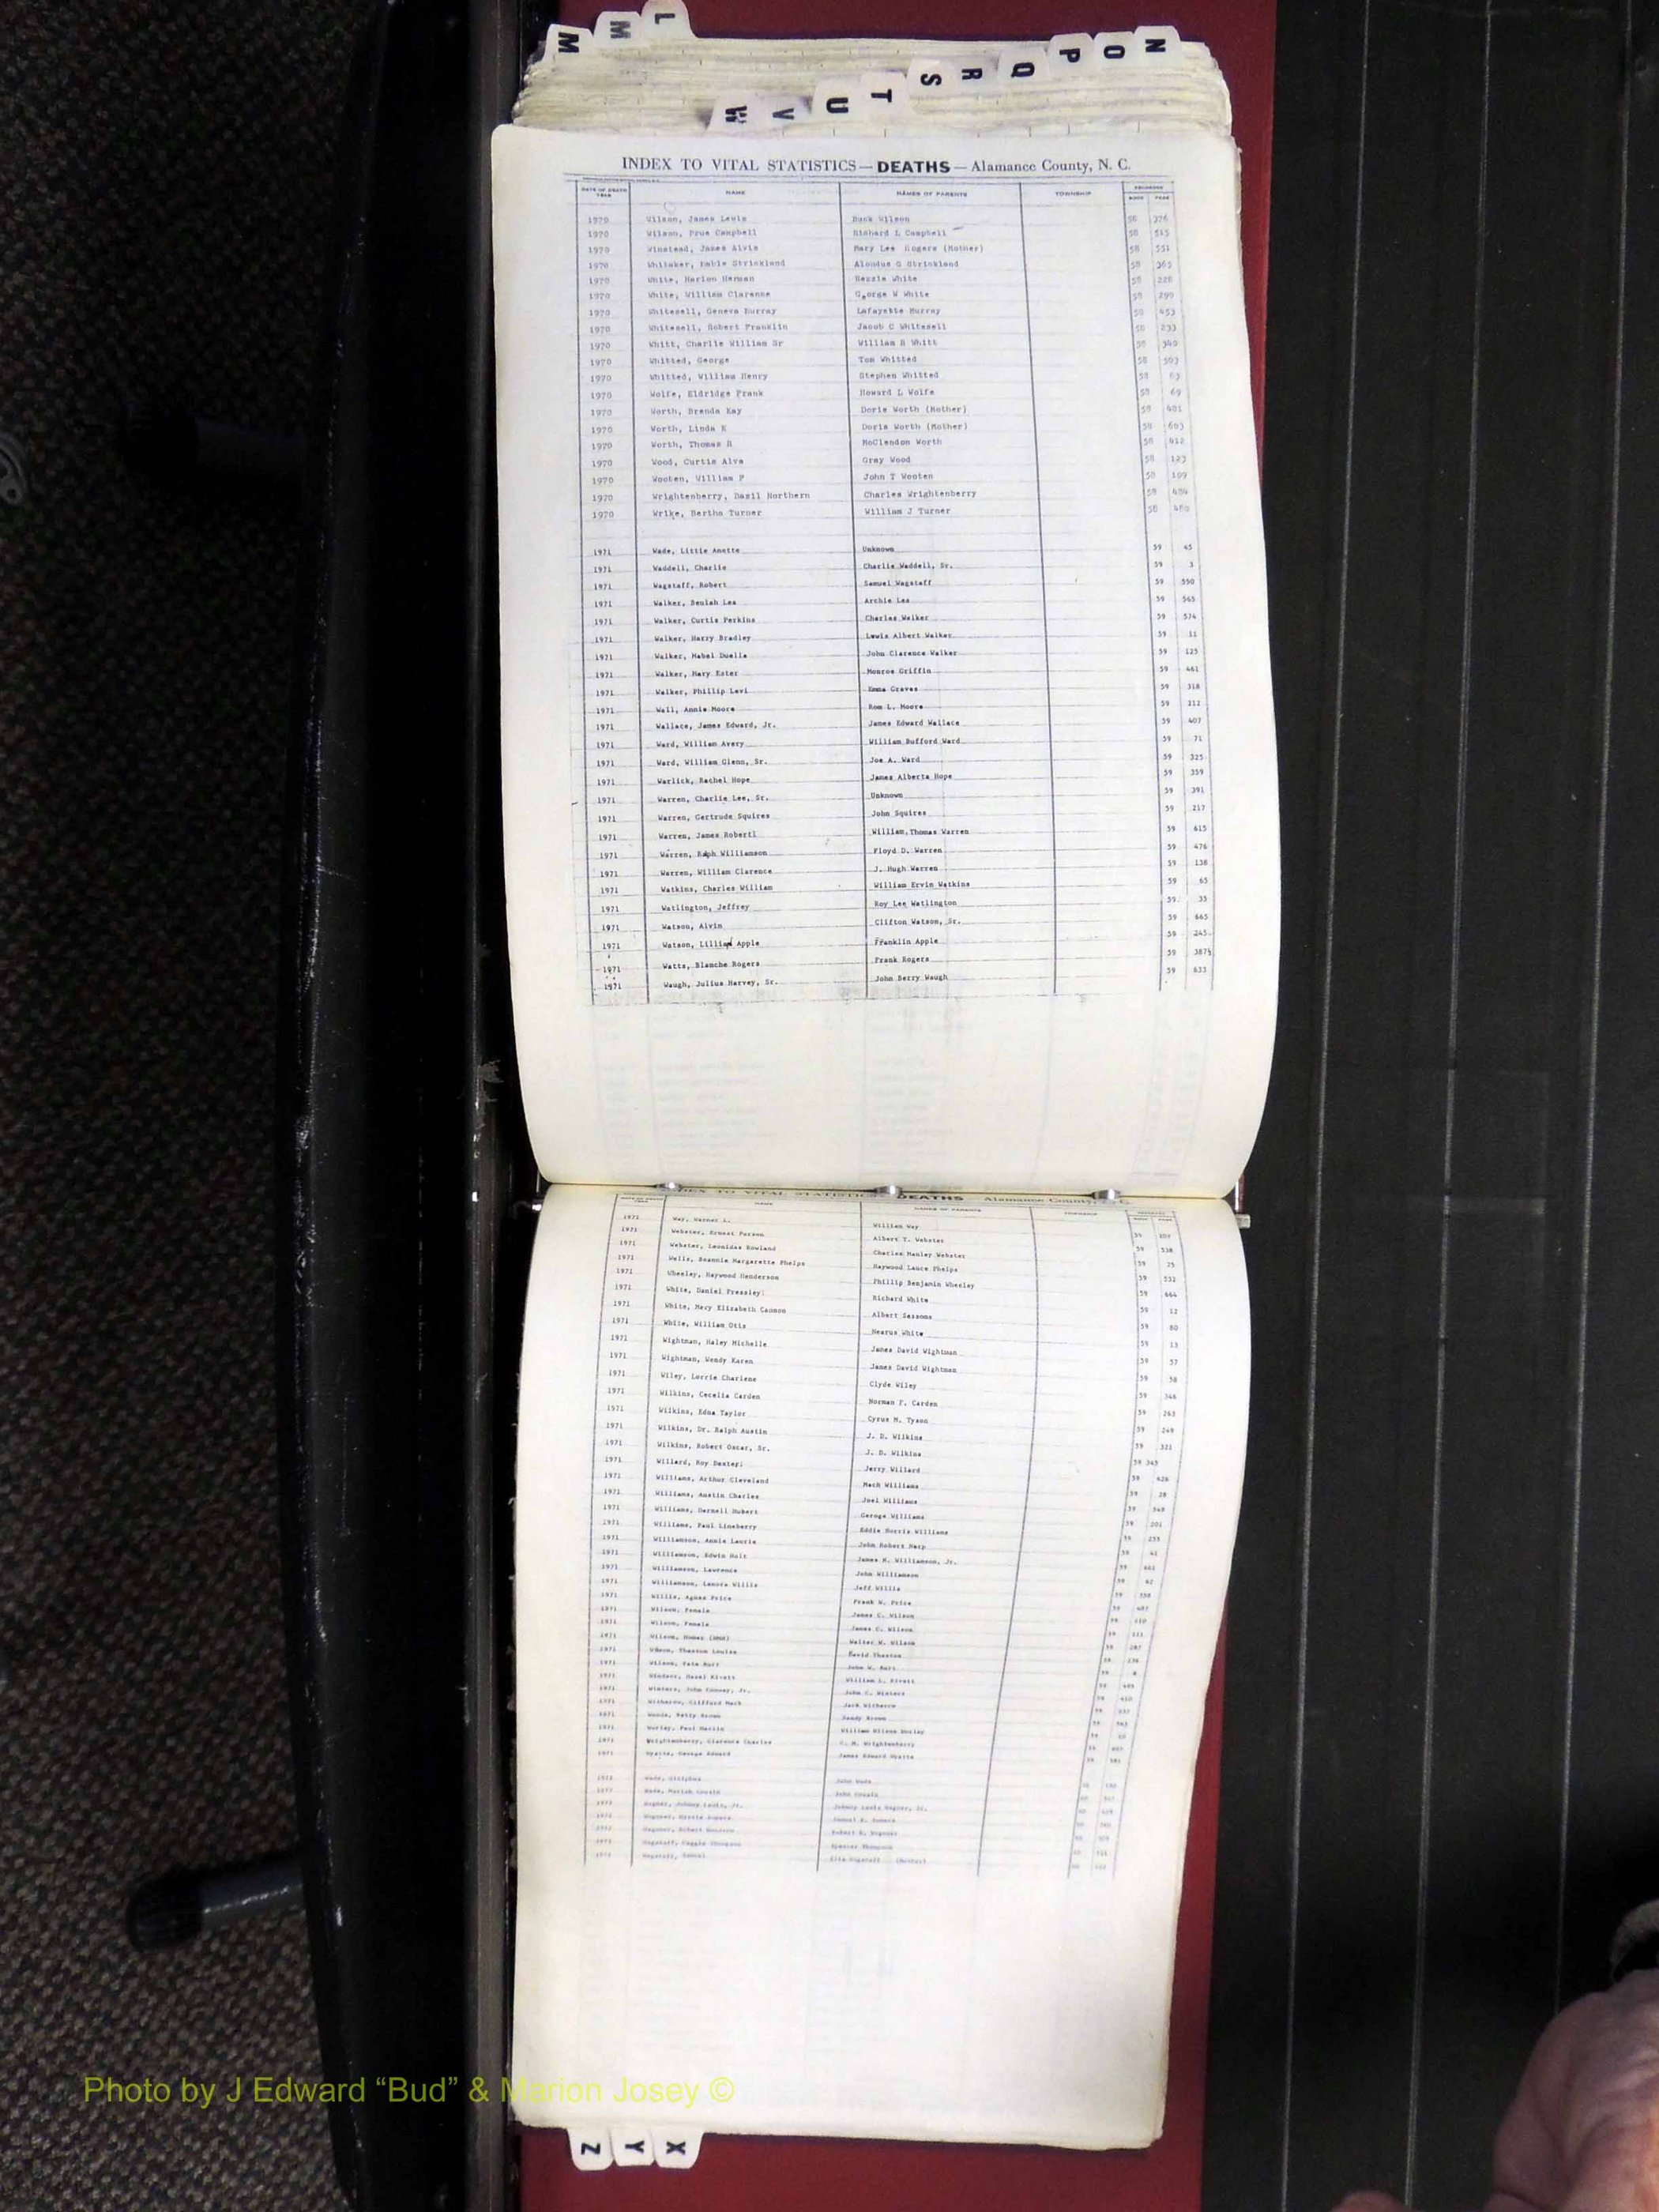 L
M
M
N
O
P
Q
R
S
T
U
V
W
INDEX TO VITAL STATISTICS — DEATHS — Alamance County, N. C.
DATE OF DEATH YEAR NAME NAMES OF PARENTS TOWNSHIP BOOK PAGE
1970 Wilson, James Lewis Buck Wilson 58 376
1970 Wilson, Prue Campbell Richard L Campbell 58 515
1970 Winstead, James Alvis Mary Lee Rogers (Mother) 58 551
1970 Whitaker, Mable Strickland Alondus G Strickland 58 365
1970 White, Harlon Herman Bessie White 58 228
1970 White, William Clarence George W White 58 290
1970 Whitesell, Geneva Murray Lafayette Murray 58 453
1970 Whitesell, Robert Franklin Jacob C Whitesell 58 233
1970 Whitt, Charlie William Sr William B Whitt 58 340
1970 Whitted, George Tom Whitted 58 503
1970 Whitted, William Henry Stephen Whitted 58 63
1970 Wolfe, Eldridge Frank Howard L Wolfe 58 69
1970 Worth, Brenda Kay Doris Worth (Mother) 58 401
1970 Worth, Linda K Doris Worth (Mother) 58 603
1970 Worth, Thomas B McClendon Worth 58 412
1970 Wood, Curtis Alva Gray Wood 58 123
1970 Wooten, William P John T Wooten 58 109
1970 Wrightenberry, Basil Northern Charles Wrightenberry 58 484
1970 Wrike, Bertha Turner William J Turner 58 480
1971 Wade, Little Anette Unknown 59 45
1971 Waddell, Charlie Charlie Waddell, Sr. 59 3
1971 Wagstaff, Robert Samuel Wagstaff 59 550
1971 Walker, Beulah Lea Archie Lea 59 565
1971 Walker, Curtis Perkins Charles Walker 59 574
1971 Walker, Harry Bradley Lewis Albert Walker 59 11
1971 Walker, Mabel Duella John Clarence Walker 59 125
1971 Walker, Mary Ester Monroe Griffin 59 461
1971 Walker, Phillip Levi Emma Graves 59 318
1971 Wall, Annie Moore Rom L. Moore 59 212
1971 Wallace, James Edward, Jr. James Edward Wallace 59 407
1971 Ward, William Avery William Bufford Ward 59 71
1971 Ward, William Glenn, Sr. Joe A. Ward 59 325
1971 Warlick, Rachel Hope James Alberta Hope 59 359
1971 Warren, Charlie Lee, Sr. Unknown 59 391
1971 Warren, Gertrude Squires John Squires 59 217
1971 Warren, James Robertl William Thomas Warren 59 615
1971 Warren, Ralph Williamson Floyd D. Warren 59 476
1971 Warren, William Clarence J. Hugh Warren 59 138
1971 Watkins, Charles William William Ervin Watkins 59 65
1971 Watlington, Jeffrey Roy Lee Watlington 59 35
1971 Watson, Alvin Clifton Watson, Sr. 59 665
1971 Watson, Lillian Apple Franklin Apple 59 245
1971 Watts, Blanche Rogers Frank Rogers 59 387½
1971 Waugh, Julius Harvey, Sr. John Berry Waugh 59 633
INDEX TO VITAL STATISTICS DEATHS Alamance County
NAME NAMES OF PARENTS TOWNSHIP
1971 Way, Warner L. William Way 59
1971 Webster, Ernest Person Albert T. Webster 59 538
1971 Webster, Leonidas Rowland Charles Manley Webster 59 75
1971 Wells, Beannie Margarette Phelps Haywood Lance Phelps 59 532
1971 Wheeley, Haywood Henderson Phillip Benjamin Wheeley 59 664
1971 White, Daniel Pressleyl Richard White 59 12
1971 White, Mary Elizabeth Cannon Albert Sessoms 59 80
1971 White, William Otis Nearus White 59 13
1971 Wightman, Haley Michelle James David Wightman 59 57
1971 Wightman, Wendy Karen James David Wightman 59 58
1971 Wiley, Lorrie Charlene Clyde Wiley 59 346
1971 Wilkins, Cecelia Carden Norman F. Carden 59 263
1971 Wilkins, Edna Taylor Cyrus M. Tyson 59 249
1971 Wilkins, Dr. Ralph Austin J. D. Wilkins 59 321
1971 Wilkins, Robert Oscar, Sr. J. D. Wilkins 59 345
1971 Willard, Roy Dexterl Jerry Willard 59 426
1971 Williams, Arthur Cleveland Mack Williams 59 28
1971 Williams, Austin Charles Joel Williams 59 548
1971 Williams, Darnell Hubert Geroge Williams 59 201
1971 Williams, Paul Lineberry Eddie Norris Williams 59 255
1971 Williamson, Annie Laurie John Robert Harp 59 41
1971 Williamson, Edwin Holt James N. Williamson, Jr. 59
1971 Williamson, Lawrence John Williamson 59 62
1971 Williamson, Lenora Willis Jeff Willis 59
1971 Willis, Agnes Price Frank W. Price 59
1971 Wilson, Female James C. Wilson 59 110
1971 Wilson, Female James C. Wilson 59 111
1971 Wilson, Homer (NMN) Walter W. Wilson 59 287
1971 Wilson, Thaxton Louise David Thaxton 59
1971 Wilson, Vate Burt John W. Burt 59
1971 Windsor, Hazel Rivett William L. Rivett 59
1971 Winters, John Conney, Jr. John C. Winters 59
1971 Witherow, Clifford Mack Jack Witherow 59
1971 Woods, Betty Brown Sandy Brown 59
1971 Worley, Paul Martin William Wilson Worley 59
1971 Wrightenberry, Clarence Charles C. M. Wrightenberry 59
1971 Wyatte, George Edward James Edward Wyatte 59
1972 Wade, John Wade
1972 Wade, Mariah Cousin John Cousin
1972 Wagner, Johnny Lewis, Jr. Johnny Lewis Wagner, Sr.
1972 Wagoner,
1972 Wagoner, Robert Robert
1972 Wagstaff, Maggie Thompson Spencer Thompson
1972 Wagstaff, Samuel Ella Wagstaff (Mother)
Photo by J Edward “Bud” & Marion Josey ©
Z
Y
X